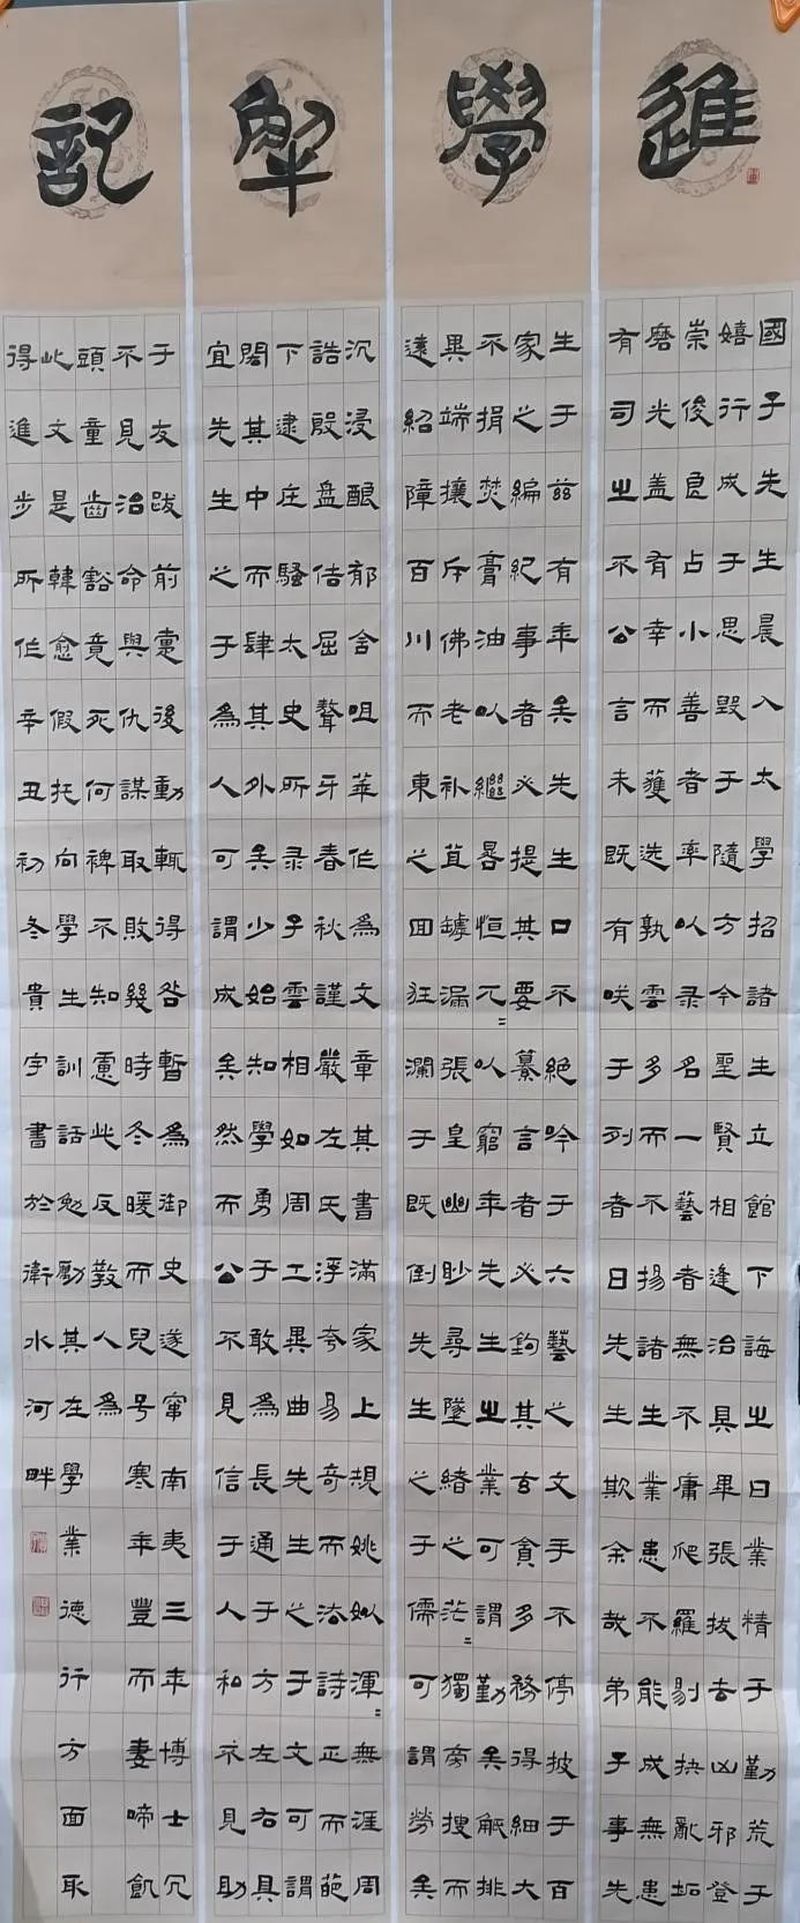 進學觧記
國子先生晨入太學招諸生立館下誨之曰業精于勤荒于
嬉行成于思毀于隨方今聖賢相逢治具畢張拔去凶邪登
崇俊良占小善者率以录名一藝者無不庸爬羅剔抉亂垢
磨光盖有幸而獲选孰雲多而不揚諸生業患不能成無患
有司之不公言未既有咲于列者曰先生欺余哉弟子事先
生于茲有年矣先生口不絕吟于六藝之文手不停披于百
家之編紀事者必提其要纂言者必鉤其玄貪多務得細大
不捐焚膏油以繼晷恒兀〻以窮年先生之業可謂勤矣觝排
異端攘斥佛老补苴罅漏張皇幽眇尋墜緒之茫〻獨旁搜而
遠紹障百川而東之回狂瀾于既倒先生之于儒可謂勞矣
沉浸酿郁含咀華作為文章其書滿家上規姚姒渾〻無涯周
誥殷盘佶屈聱牙春秋謹嚴左氏浮夸易奇而法詩正而葩
下逮庄騷太史所录子雲相如周工異曲先生之于文可謂
閎其中而肆其外矣少始知學勇于敢為長通于方左右具
宜先生之于為人可謂成矣然而公不見信于人和不見助
于友跋前疐後動輒得咎暫為御史遂窜南夷三年博士冗
不見治命與仇謀取敗幾時冬暖而兒号寒年豐而妻啼飢
頭童齒豁竟死何裨不知慮此反教人為
此文是韓愈假托向學生訓話勉勵其在學業德行方面取
得進步所作辛丑初冬貴宇書於衛水河畔